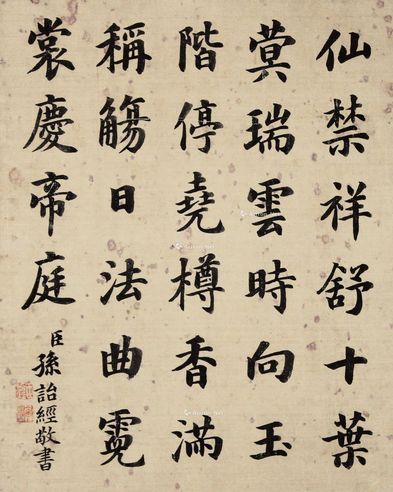 仙禁祥舒十葉
蓂瑞雲時向玉
階停堯樽香滿
稱觴日法曲霓
裳慶帝庭
臣孫詒經敬書